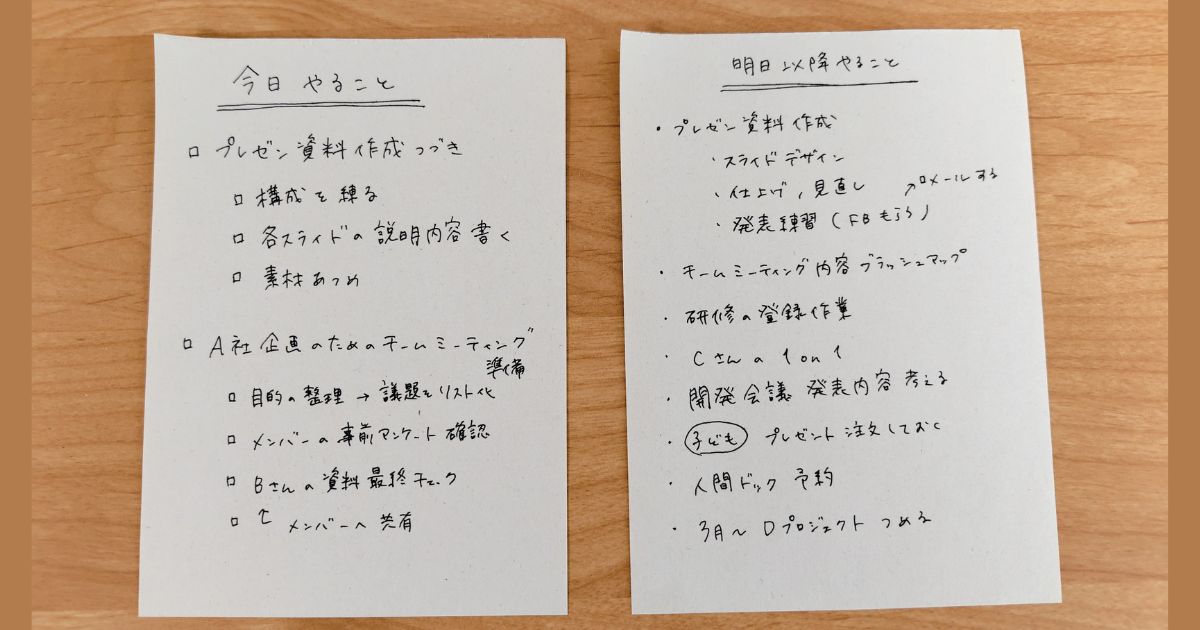 今日やること
□ プレゼン資料作成つづき
□ 構成を練る
□ 各スライドの説明内容書く
□ 素材あつめ
□ A社企画のためのチームミーティング
準備
□ 目的の整理→議題をリスト化
□ メンバーの事前アンケート確認
□ Bさんの資料最終チェック
□ ↑ メンバーへ共有
明日以降やること
・プレゼン資料作成
・スライドデザイン
・仕上げ,見直し
↗□メールする
・発表練習(FBもらう)
・チームミーティング内容ブラッシュアップ
・研修の登録作業
・Cさんの1on1
・開発会議 発表内容考える
・子ども プレゼント注文しておく
・人間ドック 予約
・3月〜Dプロジェクトつめる